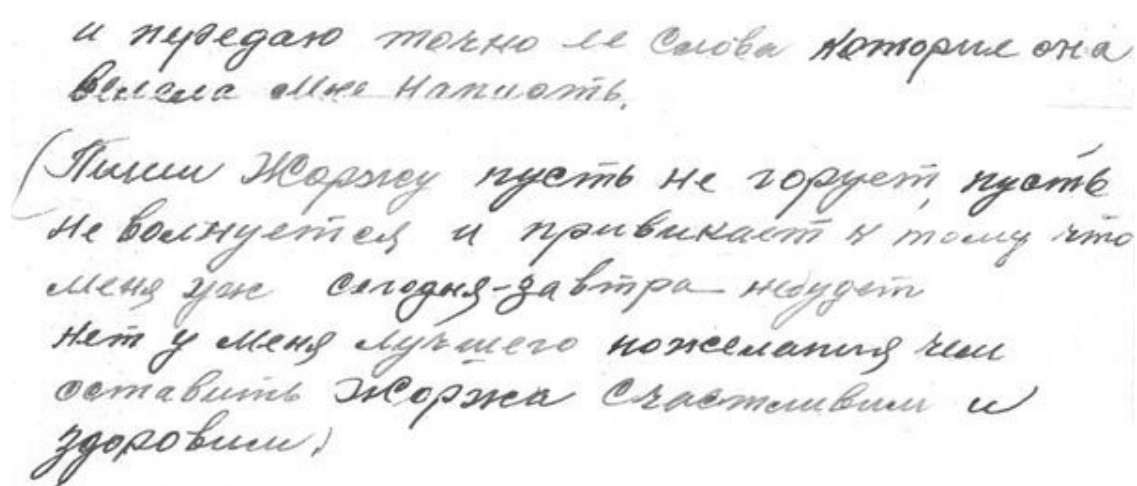 и передаю точно ее слова которие она
велела мне написать.
(Пиши Жоржу пусть не горует, пусть
не волнуется и привикает к тому что
меня уж сегодня-завтра небудет
нет у меня лучшего пожелания чем
оставить Жоржа счастливим и
здоровим.)